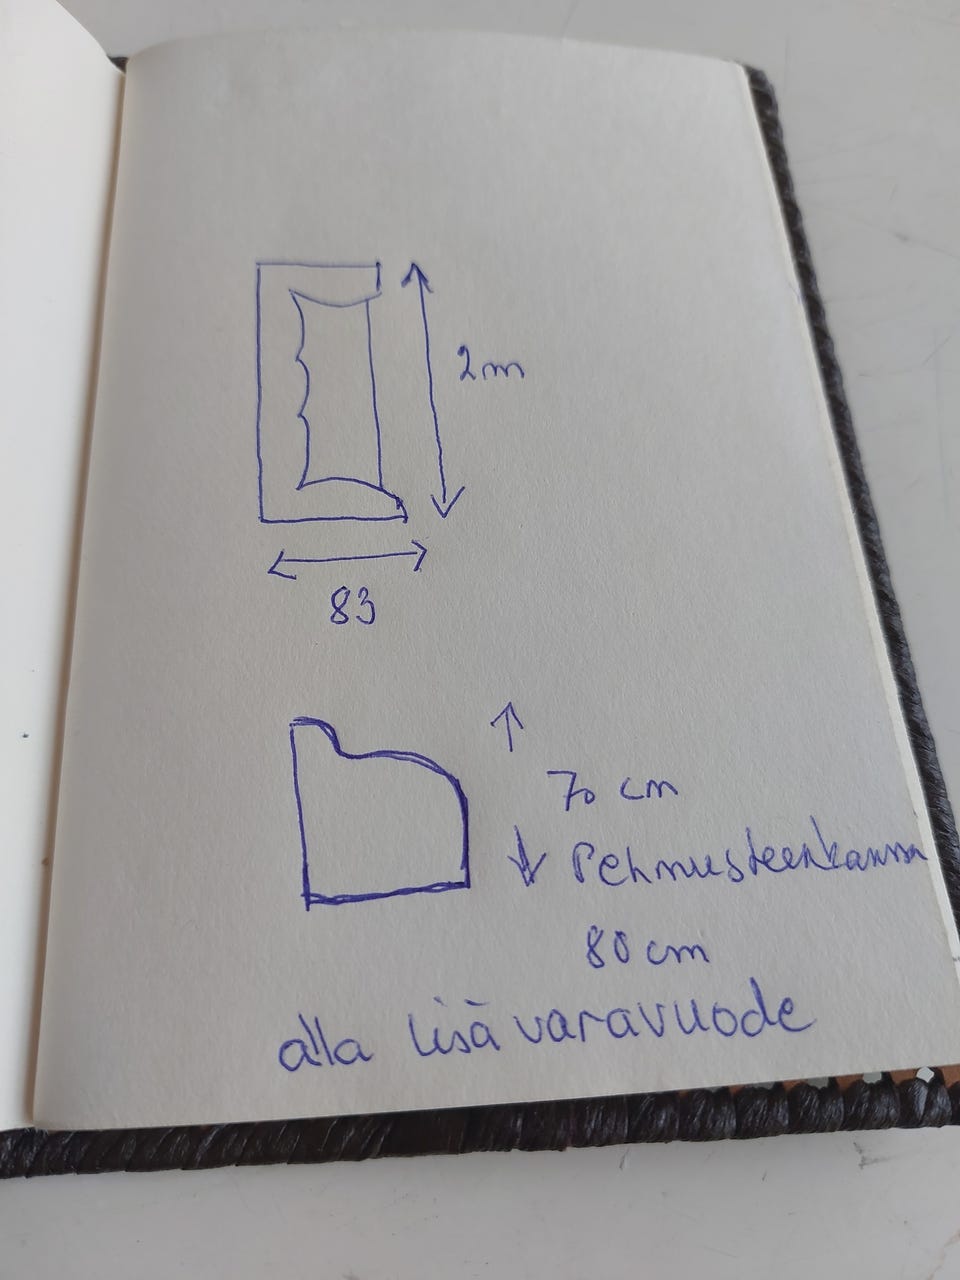 2m
83
70 cm
Pehmusteenkanssa
80 cm
alla lisä varavuode